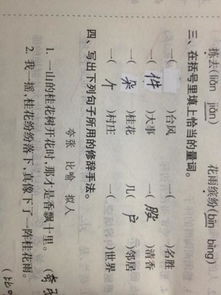 拣去(liǎn jiǎn) 花雨缤纷(bīn bīng)
三、在括号里填上恰当的量词。
一( )台风 一( )名胜
一(件)大事 一(股)清香
一(朵)桂花 几(户)邻居
一(片)村庄 一( )世界
四、写出下列句子所用的修辞手法。
夸张 比喻 拟人
1. 一山的桂花树开花时,那才是香飘十里。(夸
2. 我一摇,桂花纷纷落下,真像下了一阵桂花雨。(比